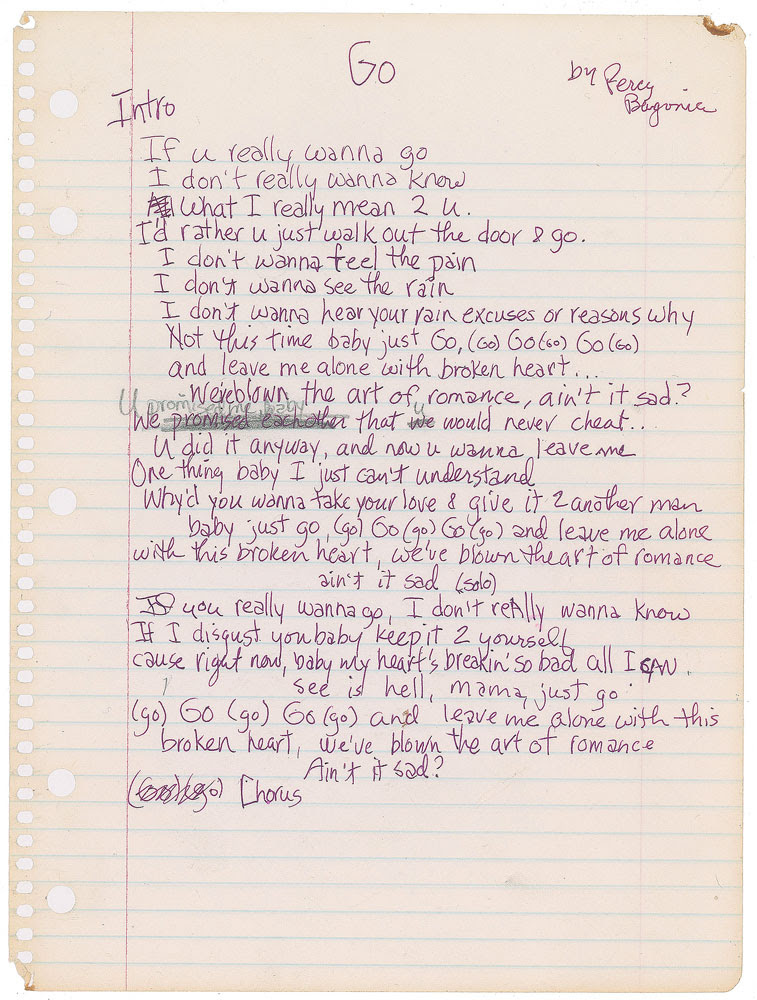 Go
by Percy
Bagonia
Intro
If u really wanna go
I don't really wanna know
What I really mean 2 u.
I'd rather u just walk out the door & go.
I don't wanna feel the pain
I don't wanna see the rain
I don't wanna hear your rain excuses or reasons why
Not this time baby just Go, (Go) Go (Go) Go (Go)
and leave me alone with broken heart...
We've blown the art of romance, ain't it sad?
U promised me, baby u
We promised eachother that we would never cheat...
U did it anyway, and now u wanna leave me
One thing baby I just can't understand
Why'd you wanna take your love & give it 2 another man
baby just go, (go) Go (go) Go (go) and leave me alone
with this broken heart, we've blown the art of romance
ain't it sad (solo)
If you really wanna go, I don't reAlly wanna know
If I disgust you baby keep it 2 yourself
cause right now, baby my heart's breakin' so bad all I cAN
see is hell, mama, just go
(go) Go (go) Go (go) and leave me alone with this
broken heart, we've blown the art of romance
Ain't it sad?
Chorus